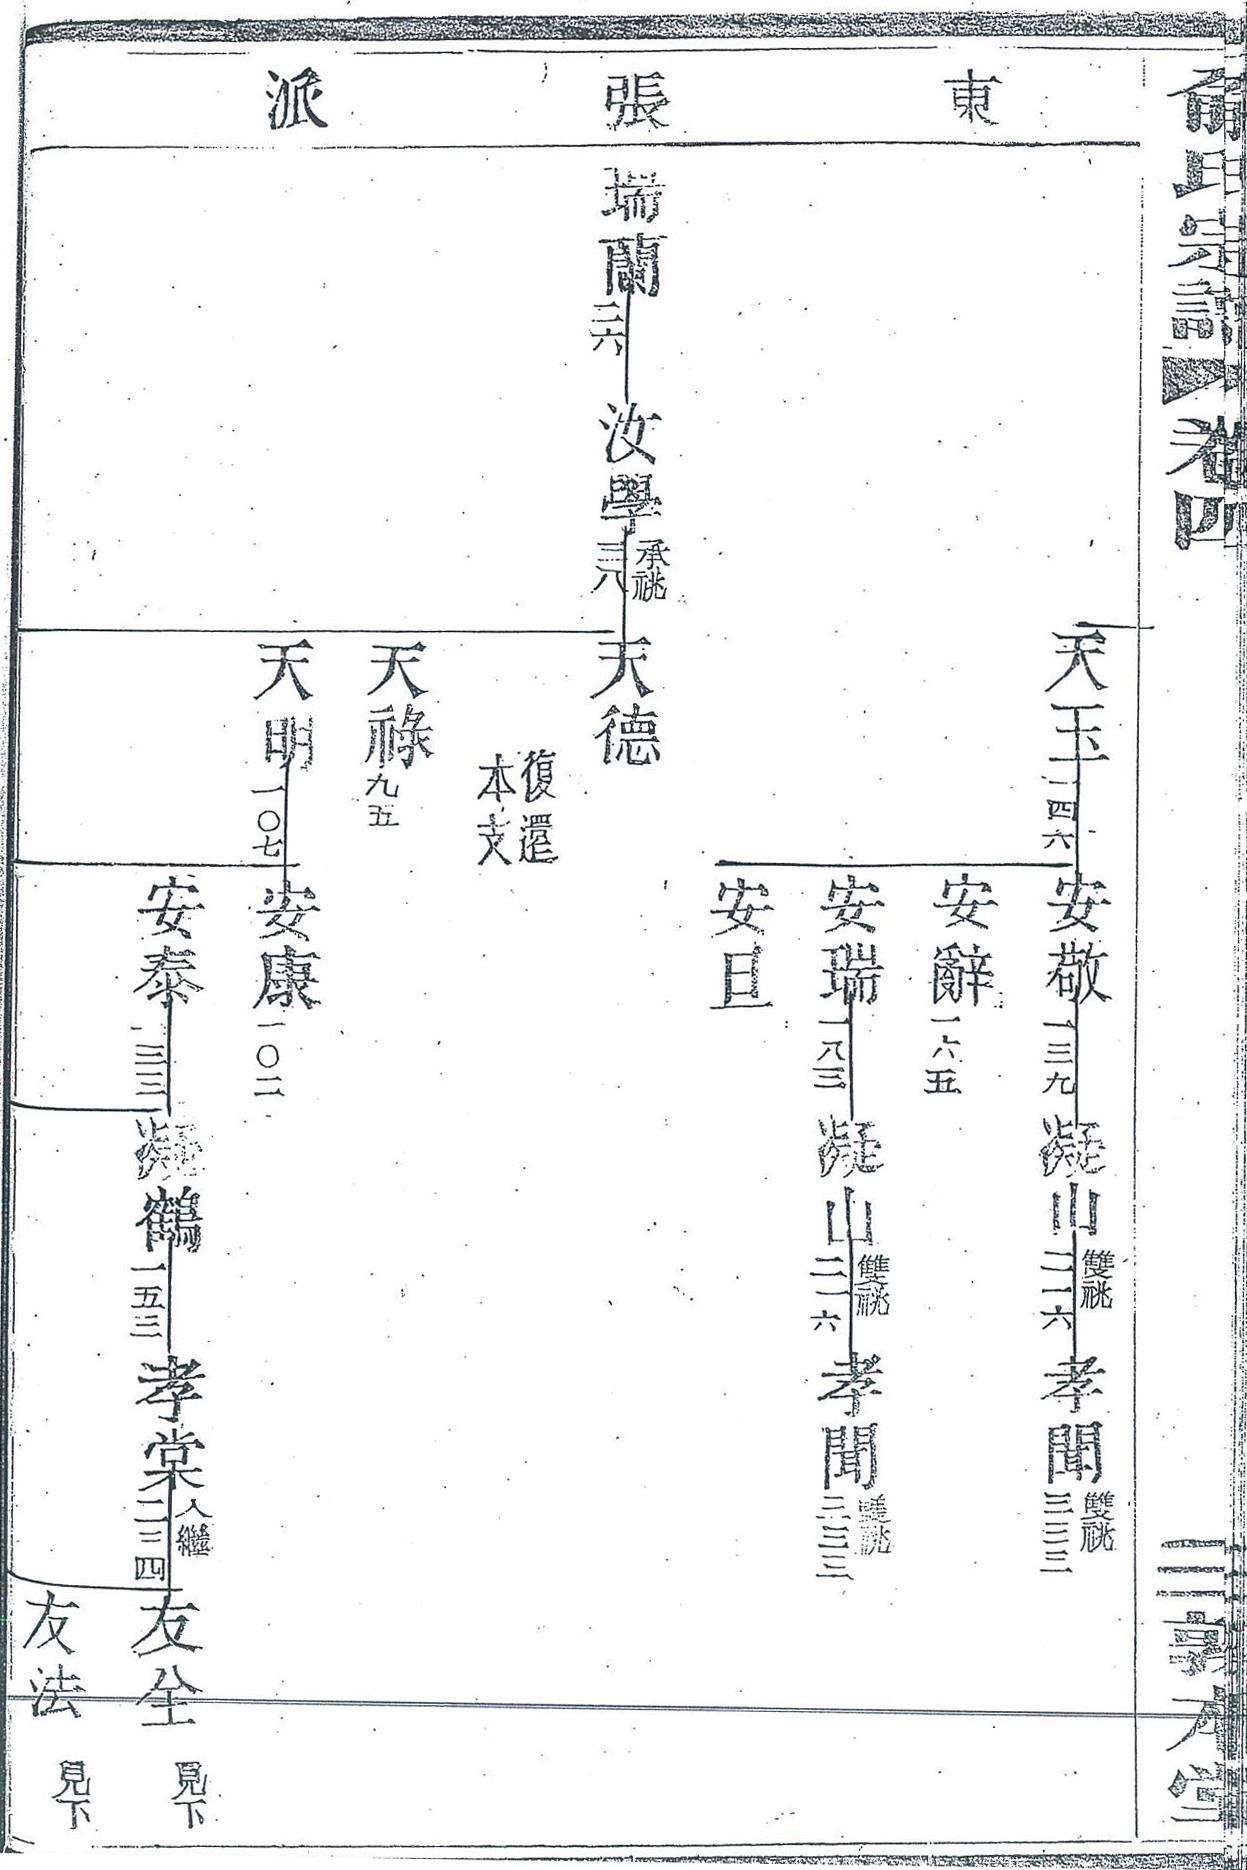 俞氏宗譜 卷四 三 敦本堂
東張派
天玉 一四六
安敬 一三九
凝山 雙祧 二一六
孝聞 雙祧 三三三
安辭 一六五
安瑞 一八三
凝山 雙祧 二一六
孝聞 雙祧 三三三
安且
瑞蘭 二六
汝學 承祧 三八
天德
復還本支
天祿 九五
天明 一〇七
安康 一〇二
安泰 一三三
凝鶴 一五三
孝棠 入繼 二三四
友全 見下
友法 見下